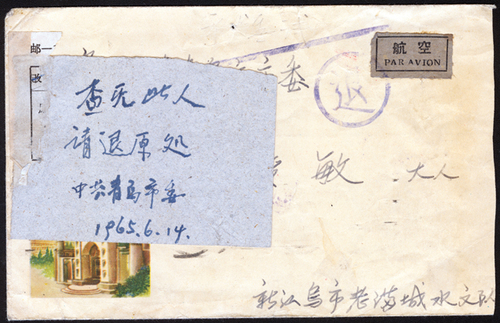 邮一
改
市委
航空
PAR AVION
查无此人
请退原处
中共青岛市委
1965.6.14.
敏 大人
新江乌市老满城水文队